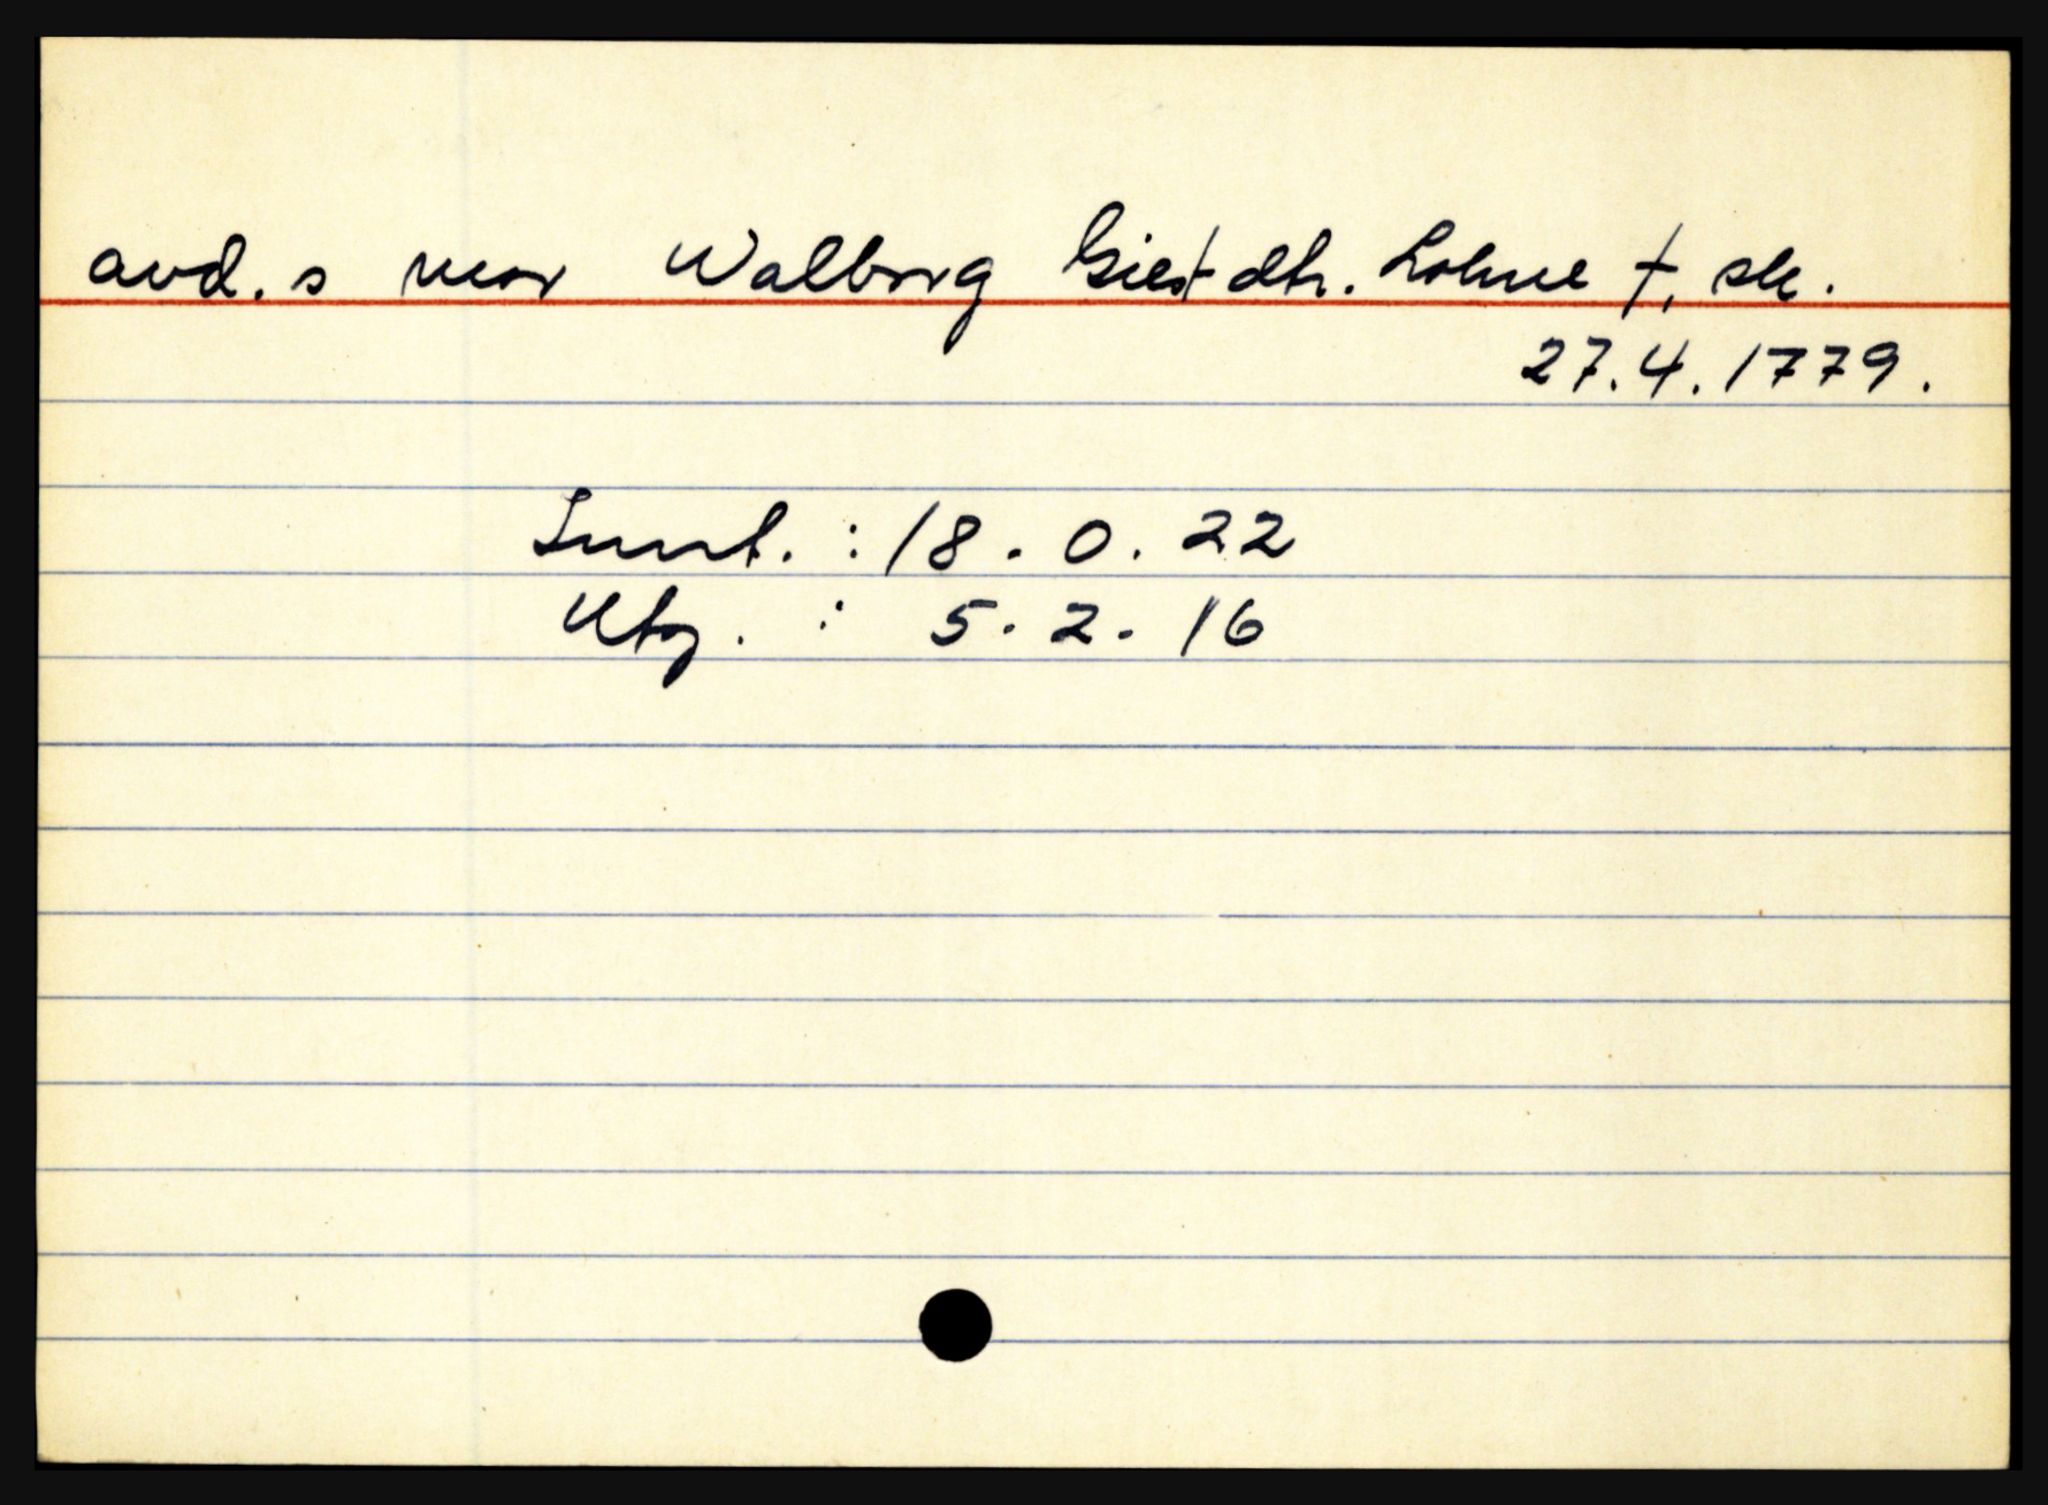 avd. s mor Walborg Giestdtr. Lohne †, sk.
27.4.1779.
Innt. : 18 . 0 . 22
Utg. : 5 . 2 . 16